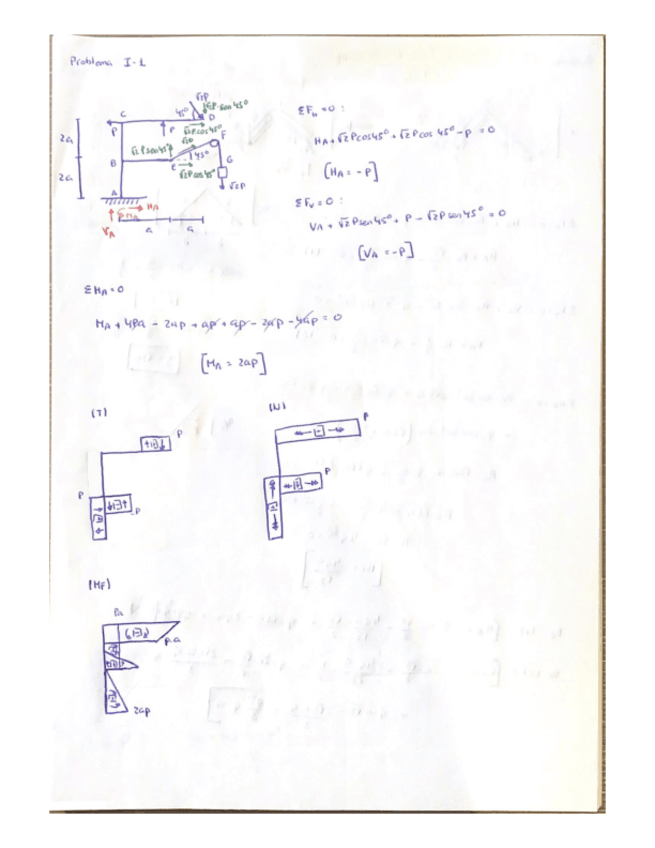 Problema I-1
√2P
45°
√2P·sen45°
C
D
P
P
√2Pcos45°
F
2a
√2Psen45°
√2P
45°
B
E
G
√2Pcos45°
2a
√2P
A
HA
MA
VA
a
a
ΣFH=0 :
HA+√2Pcos45+√2Pcos45°-P = 0
[HA = -P]
ΣFV=0 :
VA + √2Psen45° + P - √2Psen45° = 0
[VA = -P]
ΣMA=0
MA + 4Pa - 2ap + ap + ap - 2ap - 4ap = 0
[MA = 2ap]
(T)
P
P
P
(N)
P
P
(MF)
Pa
P.a
2ap